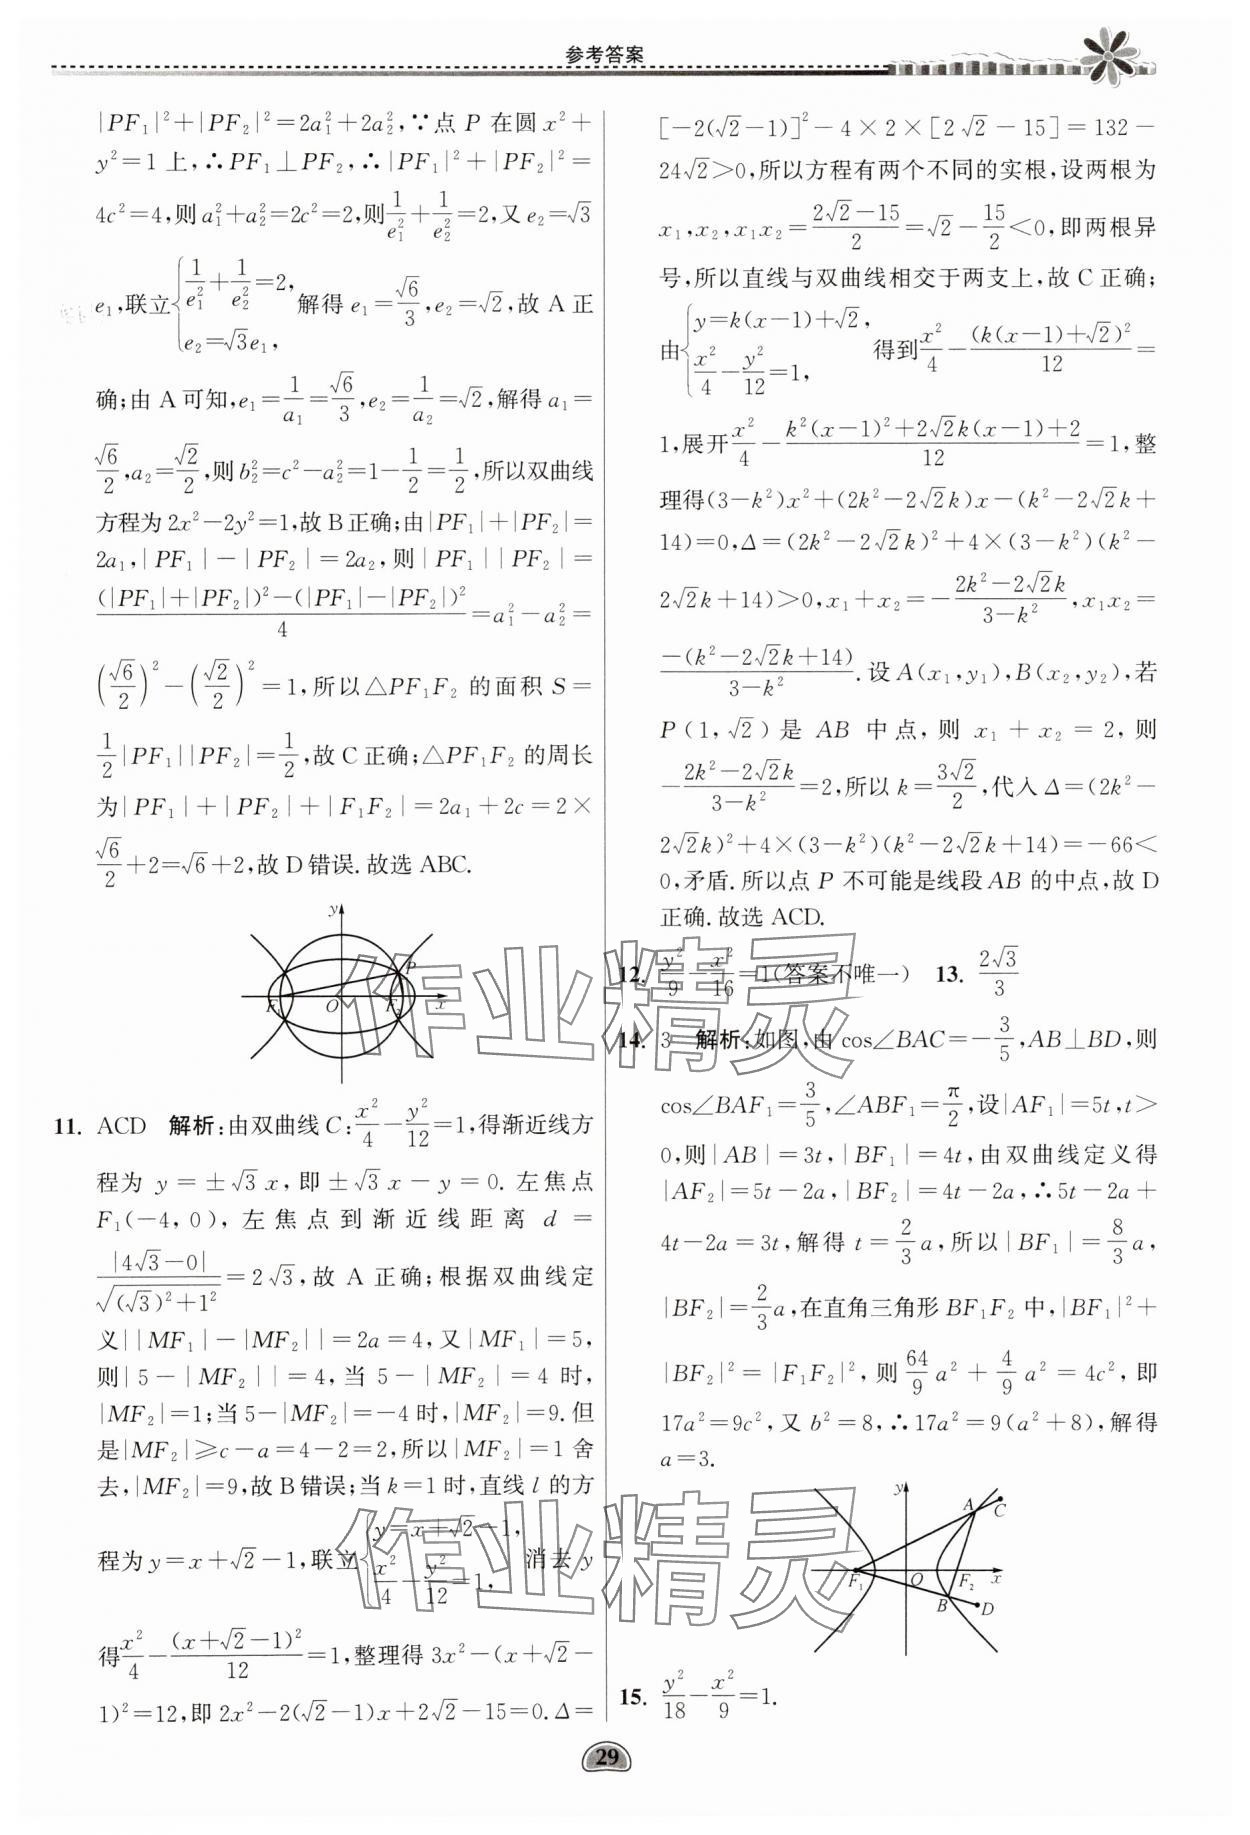 参考答案
|PF₁|²+|PF₂|²=2a₁²+2a₂²,∵点 P 在圆 x²+
y²=1 上,∴PF₁⊥PF₂,∴|PF₁|²+|PF₂|²=
4c²=4,则 a₁²+a₂²=2c²=2,则1/e₁²+1/e₂²=2,又 e₂=√3
e₁,联立{1/e₁²+1/e₂²=2, e₂=√3e₁, 解得 e₁=√6/3,e₂=√2,故 A 正
确;由 A 可知,e₁=1/a₁=√6/3,e₂=1/a₂=√2,解得 a₁=
√6/2,a₂=√2/2,则 b₂²=c²-a₂²=1-1/2=1/2,所以双曲线
方程为 2x²-2y²=1,故 B 正确;由|PF₁|+|PF₂|=
2a₁,|PF₁|-|PF₂|=2a₂,则|PF₁||PF₂|=
((|PF₁|+|PF₂|)²-(|PF₁|-|PF₂|)²)/4=a₁²-a₂²=
(√6/2)²-(√2/2)²=1,所以△PF₁F₂ 的面积 S=
1/2|PF₁||PF₂|=1/2,故 C 正确;△PF₁F₂ 的周长
为|PF₁|+|PF₂|+|F₁F₂|=2a₁+2c=2×
√6/2+2=√6+2,故 D 错误.故选 ABC.
y
P
F₁ O F₂ x
11. ACD 解析:由双曲线 C:x²/4-y²/12=1,得渐近线方
程为 y=±√3x,即±√3x-y=0.左焦点
F₁(-4,0),左焦点到渐近线距离 d=
|4√3-0|/√((√3)²+1²)=2√3,故 A 正确;根据双曲线定
义||MF₁|-|MF₂||=2a=4,又|MF₁|=5,
则|5-|MF₂||=4,当 5-|MF₂|=4 时,
|MF₂|=1;当 5-|MF₂|=-4 时,|MF₂|=9.但
是|MF₂|≥c-a=4-2=2,所以|MF₂|=1 舍
去,|MF₂|=9,故 B 错误;当 k=1 时,直线 l 的方
程为 y=x+√2-1,联立{y=x+√2-1, x²/4-y²/12=1, 消去 y
得x²/4-(x+√2-1)²/12=1,整理得 3x²-(x+√2-
1)²=12,即 2x²-2(√2-1)x+2√2-15=0.Δ=
[-2(√2-1)]²-4×2×[2√2-15]=132-
24√2>0,所以方程有两个不同的实根,设两根为
x₁,x₂,x₁x₂=(2√2-15)/2=√2-15/2<0,即两根异
号,所以直线与双曲线相交于两支上,故 C 正确;
由{y=k(x-1)+√2, x²/4-y²/12=1, 得到x²/4-(k(x-1)+√2)²/12=
1,展开x²/4-(k²(x-1)²+2√2k(x-1)+2)/12=1,整
理得(3-k²)x²+(2k²-2√2k)x-(k²-2√2k+
14)=0,Δ=(2k²-2√2k)²+4×(3-k²)(k²-
2√2k+14)>0,x₁+x₂=-(2k²-2√2k)/(3-k²),x₁x₂=
-(k²-2√2k+14)/(3-k²).设 A(x₁,y₁),B(x₂,y₂),若
P(1,√2)是 AB 中点,则 x₁+x₂=2,则
-(2k²-2√2k)/(3-k²)=2,所以 k=3√2/2,代入 Δ=(2k²-
2√2k)²+4×(3-k²)(k²-2√2k+14)=-66<
0,矛盾.所以点 P 不可能是线段 AB 的中点,故 D
正确.故选 ACD.
12. y²/9-x²/16=1(答案不唯一) 13. 2√3/3
14. 3 解析:如图,由 cos∠BAC=-3/5,AB⊥BD,则
cos∠BAF₁=3/5,∠ABF₁=π/2,设|AF₁|=5t,t>
0,则|AB|=3t,|BF₁|=4t,由双曲线定义得
|AF₂|=5t-2a,|BF₂|=4t-2a,∴5t-2a+
4t-2a=3t,解得 t=2/3a,所以|BF₁|=8/3a,
|BF₂|=2/3a,在直角三角形 BF₁F₂ 中,|BF₁|²+
|BF₂|²=|F₁F₂|²,则 64/9a²+4/9a²=4c²,即
17a²=9c²,又 b²=8,∴17a²=9(a²+8),解得
a=3.
y
A C
F₁ O F₂ x
B D
15. y²/18-x²/9=1.
29
作业精灵
作业精灵